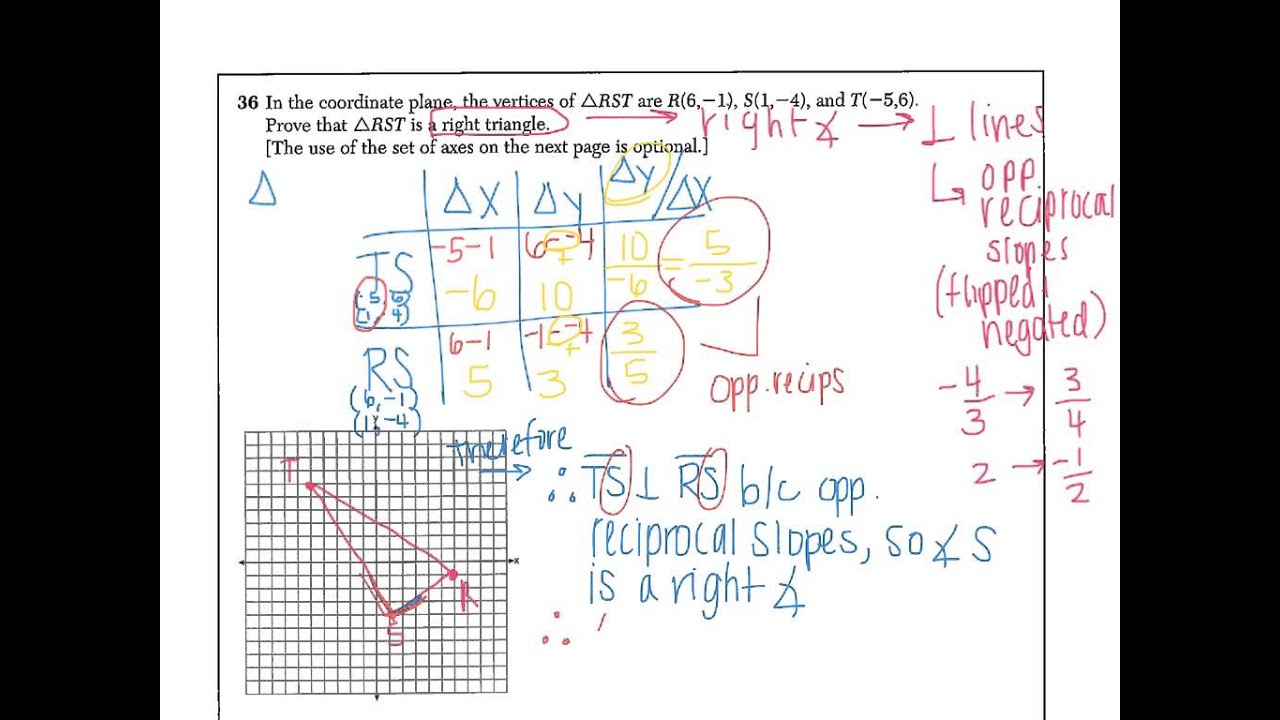 36 In the coordinate plane, the vertices of △RST are R(6,−1), S(1,−4), and T(−5,6).
Prove that △RST is a right triangle.
[The use of the set of axes on the next page is optional.]
→ right ∡ → ⊥ lines
↳ opp.
reciprocal
slopes
(flipped
negated)
-4/3 → 3/4
2 → -1/2
Δ
ΔX ΔY ΔY/ΔX
TS -5-1 6--4 10/-6 = 5/-3
-6 10
RS 6-1 -1--4 3/5
(6,-1) 5 3
(1,-4)
opp. recips
therefore
∴ TS ⊥ RS b/c opp.
reciprocal slopes, so ∡ S
is a right ∡
∴
T
R
S
x